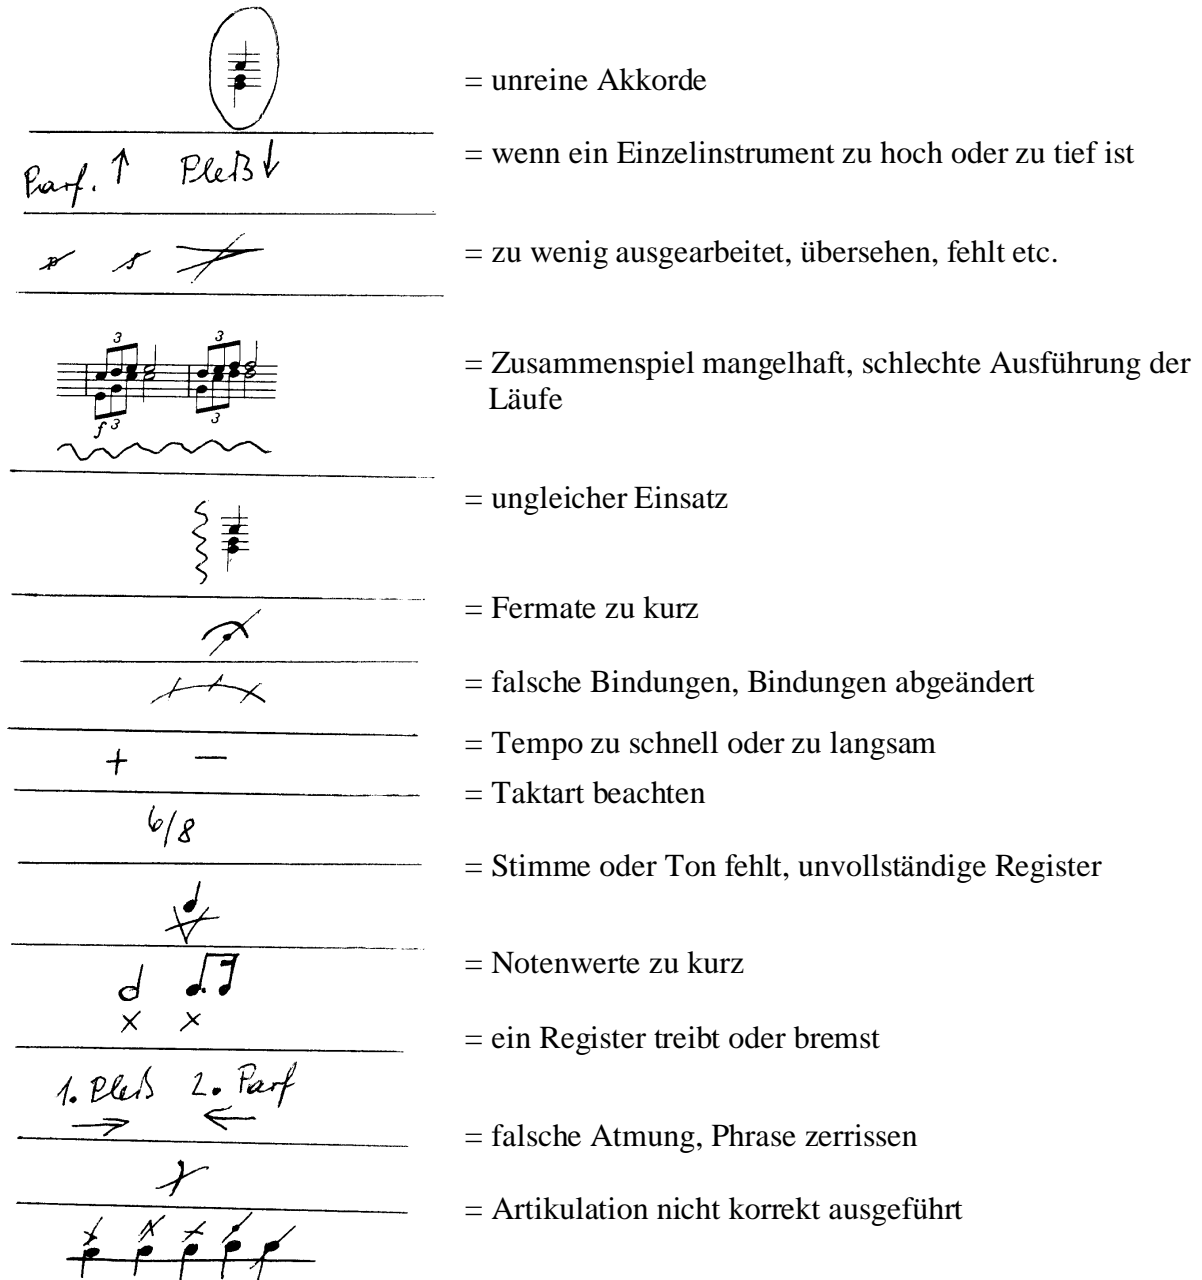 = unreine Akkorde
Parf. ↑ Pleß ↓
= wenn ein Einzelinstrument zu hoch oder zu tief ist
p f
= zu wenig ausgearbeitet, übersehen, fehlt etc.
3 3
= Zusammenspiel mangelhaft, schlechte Ausführung der
Läufe
f 3 3
= ungleicher Einsatz
= Fermate zu kurz
= falsche Bindungen, Bindungen abgeändert
+ −
= Tempo zu schnell oder zu langsam
= Taktart beachten
6/8
= Stimme oder Ton fehlt, unvollständige Register
= Notenwerte zu kurz
x x
= ein Register treibt oder bremst
1. Pleß 2. Parf
→ ←
= falsche Atmung, Phrase zerrissen
= Artikulation nicht korrekt ausgeführt